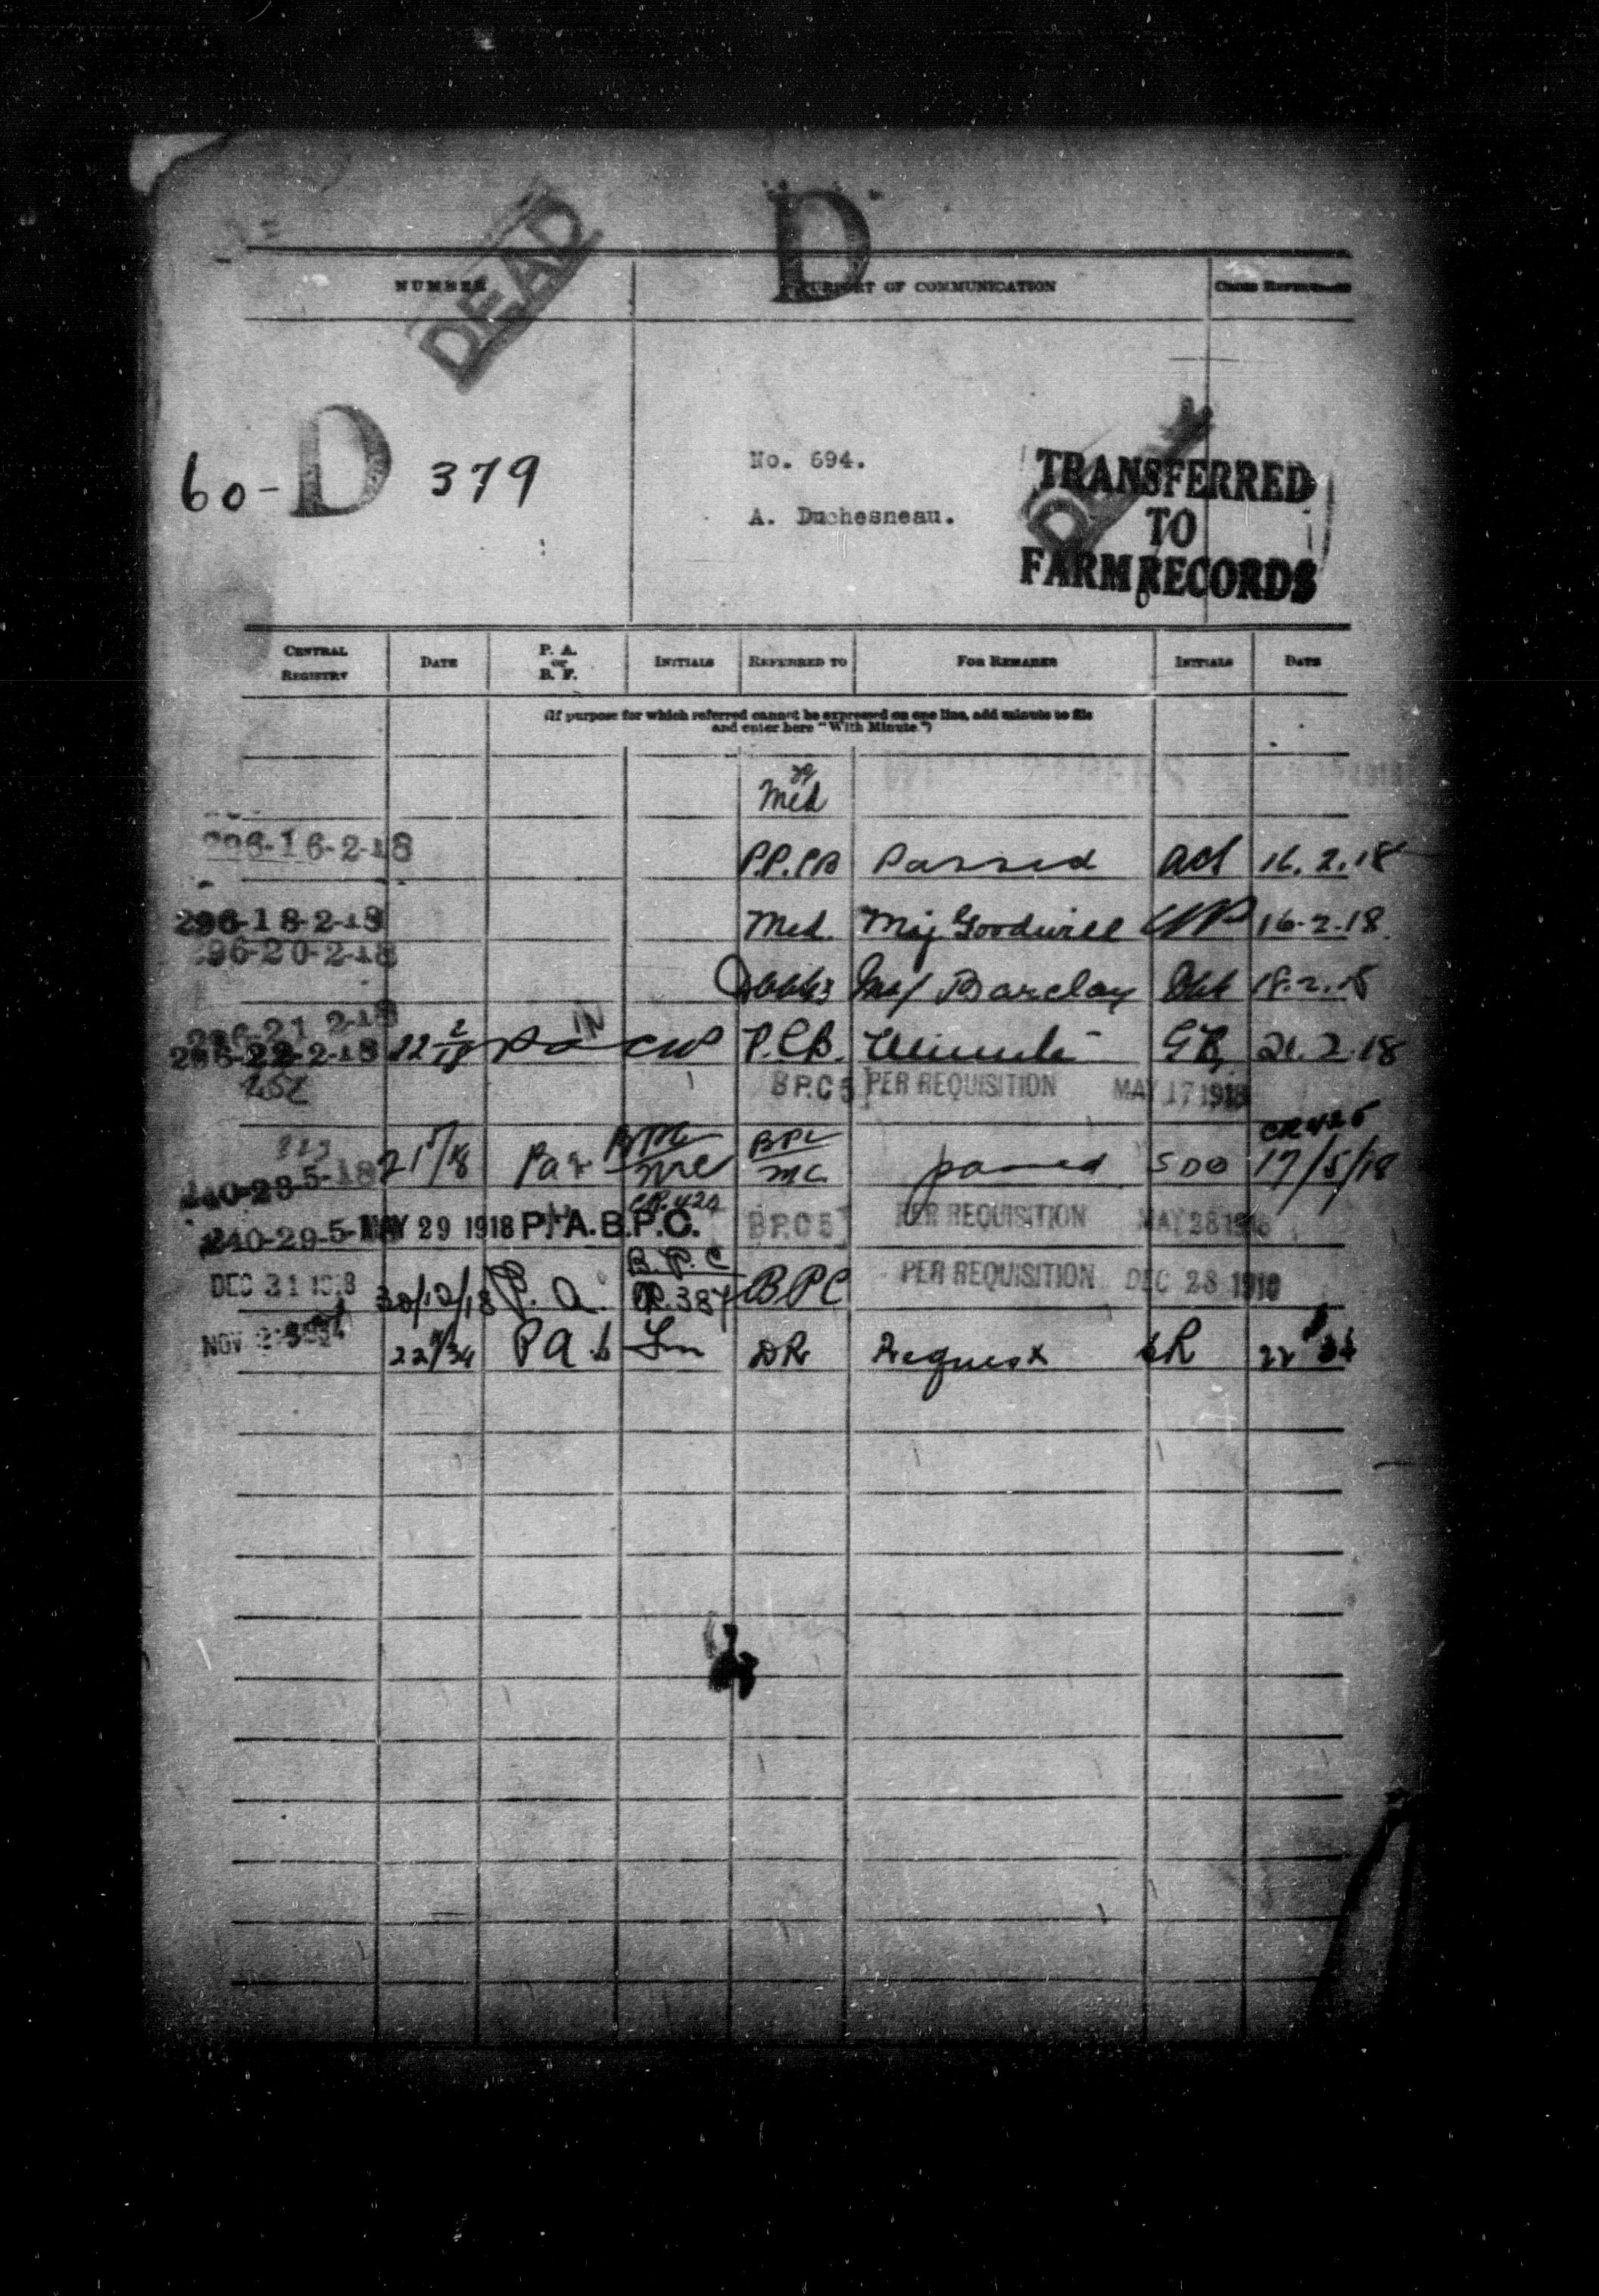 D
DEAD
NUMBER PURPORT OF COMMUNICATION CROSS REFERENCES
60-D 379
No. 694.
A. Duchesneau.
TRANSFERRED
TO
FARM RECORDS
CENTRAL REGISTRY DATE P. A. or B. F. INITIALS REFERRED TO FOR REMARKS INITIALS DATE
(If purpose for which referred cannot be expressed on one line, add minute to file
and enter here "With Minute")
Med
296-16-2-18 Passed 16.2.18
296-18-2-18 Med. Maj Goodwill 16-2-18
296-20-2-18 Barclay 18.2.18
296-21 2-18
296-22-2-18 22 2/18 PA 21.2.18
BPC5 PER REQUISITION MAY 17 1918
CR 425
240-23-5-18 21/5/18 Pa BPC/mc BPC/mc passed SDO 17/5/18
240-29-5- MAY 29 1918 P. A. B.P.C. BPC5 PER REQUISITION MAY 28 1918
DEC 31 1918 30/12/18 P. A. B.P.C CR.387 BPC PER REQUISITION DEC 28 1918
NOV 22/11/34 PA DR Request